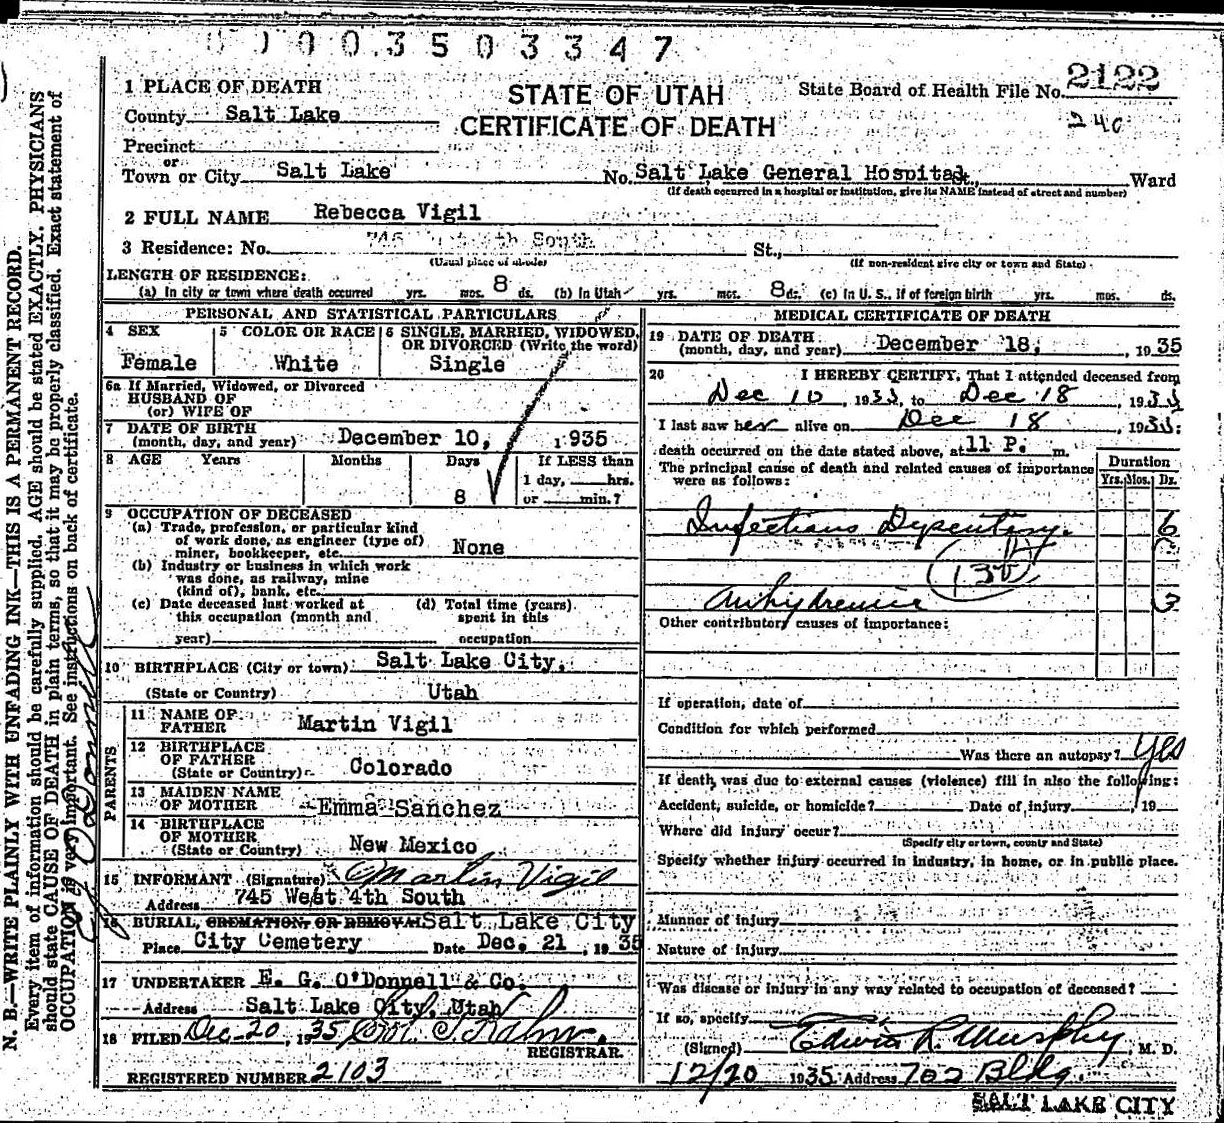 0003503347
1 PLACE OF DEATH
County Salt Lake
Precinct
or
Town or City Salt Lake
STATE OF UTAH
CERTIFICATE OF DEATH
State Board of Health File No. 2122
240
No. Salt Lake General Hospital St., Ward
(If death occurred in a hospital or institution, give its NAME instead of street and number)
2 FULL NAME Rebecca Vigil
3 Residence: No. 745 West 4th South St.,
(Usual place of abode) (If non-resident give city or town and State)
LENGTH OF RESIDENCE:
(a) In city or town where death occurred yrs. mos. 8 ds. (b) In Utah yrs. mos. 8 ds. (c) In U. S., if of foreign birth yrs. mos. ds.
PERSONAL AND STATISTICAL PARTICULARS
4 SEX
Female
5 COLOR OR RACE
White
6 SINGLE, MARRIED, WIDOWED, OR DIVORCED (Write the word)
Single
6a If Married, Widowed, or Divorced
HUSBAND OF
(or) WIFE OF
7 DATE OF BIRTH
(month, day, and year) December 10, 1935
8 AGE Years Months Days If LESS than
1 day, hrs.
8 or min.?
9 OCCUPATION OF DECEASED
(a) Trade, profession, or particular kind
of work done, as engineer (type of)
miner, bookkeeper, etc. None
(b) Industry or business in which work
was done, as railway, mine
(kind of), bank, etc.
(c) Date deceased last worked at
this occupation (month and
year)
(d) Total time (years)
spent in this
occupation
10 BIRTHPLACE (City or town) Salt Lake City,
(State or Country) Utah
PARENTS
11 NAME OF
FATHER Martin Vigil
12 BIRTHPLACE
OF FATHER
(State or Country) Colorado
13 MAIDEN NAME
OF MOTHER Emma Sanchez
14 BIRTHPLACE
OF MOTHER
(State or Country) New Mexico
15 INFORMANT (Signature) Martin Vigil
Address 745 West 4th South
16 BURIAL, CREMATION, OR REMOVAL Salt Lake City
Place City Cemetery Date Dec. 21, 1935
17 UNDERTAKER E. G. O'Donnell & Co.
Address Salt Lake City, Utah
18 FILED Dec-20, 1935
REGISTRAR.
REGISTERED NUMBER 2103
MEDICAL CERTIFICATE OF DEATH
19 DATE OF DEATH
(month, day, and year) December 18, 1935
20 I HEREBY CERTIFY, That I attended deceased from
Dec 10, 1935, to Dec 18, 1935
I last saw her alive on Dec 18, 1935;
death occurred on the date stated above, at 11 P. m.
The principal cause of death and related causes of importance
were as follows:
Duration
Yrs. Mos. Ds.
Infectious Dysentery. 6
Anhydremia 3
Other contributory causes of importance:
If operation, date of
Condition for which performed
Was there an autopsy? Yes
If death was due to external causes (violence) fill in also the following:
Accident, suicide, or homicide? Date of injury , 19
Where did injury occur?
(Specify city or town, county and State)
Specify whether injury occurred in industry, in home, or in public place.
Manner of injury
Nature of injury
Was disease or injury in any way related to occupation of deceased?
If so, specify
(Signed) Edwin R. Murphy, M. D.
12/20 1935 Address 702 Bldg.
SALT LAKE CITY
N. B.—WRITE PLAINLY WITH UNFADING INK—THIS IS A PERMANENT RECORD.
Every item of information should be carefully supplied. AGE should be stated EXACTLY. PHYSICIANS
should state CAUSE OF DEATH in plain terms, so that it may be properly classified. Exact statement of
OCCUPATION is very important. See instructions on back of certificate.